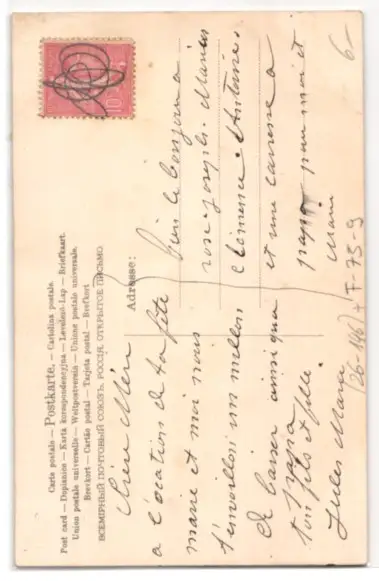 Carte postale — Postkarte. — Cartolina postale.
Post card — Dopisnice — Karta korespondencyjna — Levelező-Lap — Briefkaart.
Unión postale universelle — Weltpostverein — Unione postale universale.
Brevkort — Cartão postal — Tarjeta postal — Brefkort
ВСЕМІРНЫЙ ПОЧТОВЫЙ СОЮЗЪ. РОССІЯ. ОТКРЫТОЕ ПИСЬМО.
Adresse:
10
Chère Mère
a l'ocation de ta fête
marie et moi nous
t'envoillon un million
de baiser ainsi qua
papa
ton fils et fille
Jules Marie
bien le bonjour a
rose. Joseph. Marius
Clémence. Antoine.
et une caresse a
papa pour moi et
Marie
(26-146) + F-75-9
6-